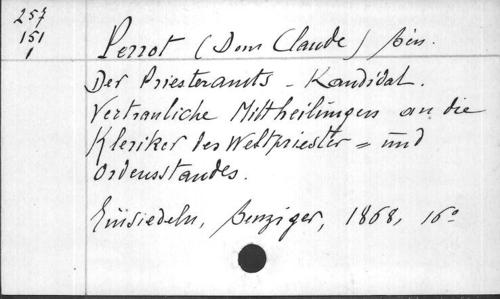 257
151
1
Perrot (Dom Claude) bén.
Der Priesteramts - Kandidat.
Vertrauliche Mittheilungen an die
Kleriker des Weltpriester = und
Ordensstandes.
Einsiedeln, Benziger, 1868, 16°